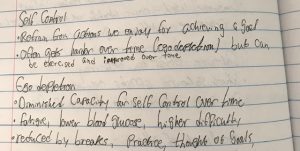 Self Control
• Refrain from actions we enjoy for achieving a goal
• Often gets harder over time (ego depletion) but can
be exercised and improved over time
Ego depletion
• Diminished capacity for self control over time
• fatigue, lower blood glucose, higher difficulty
• reduced by breaks, practice, thought of goals,